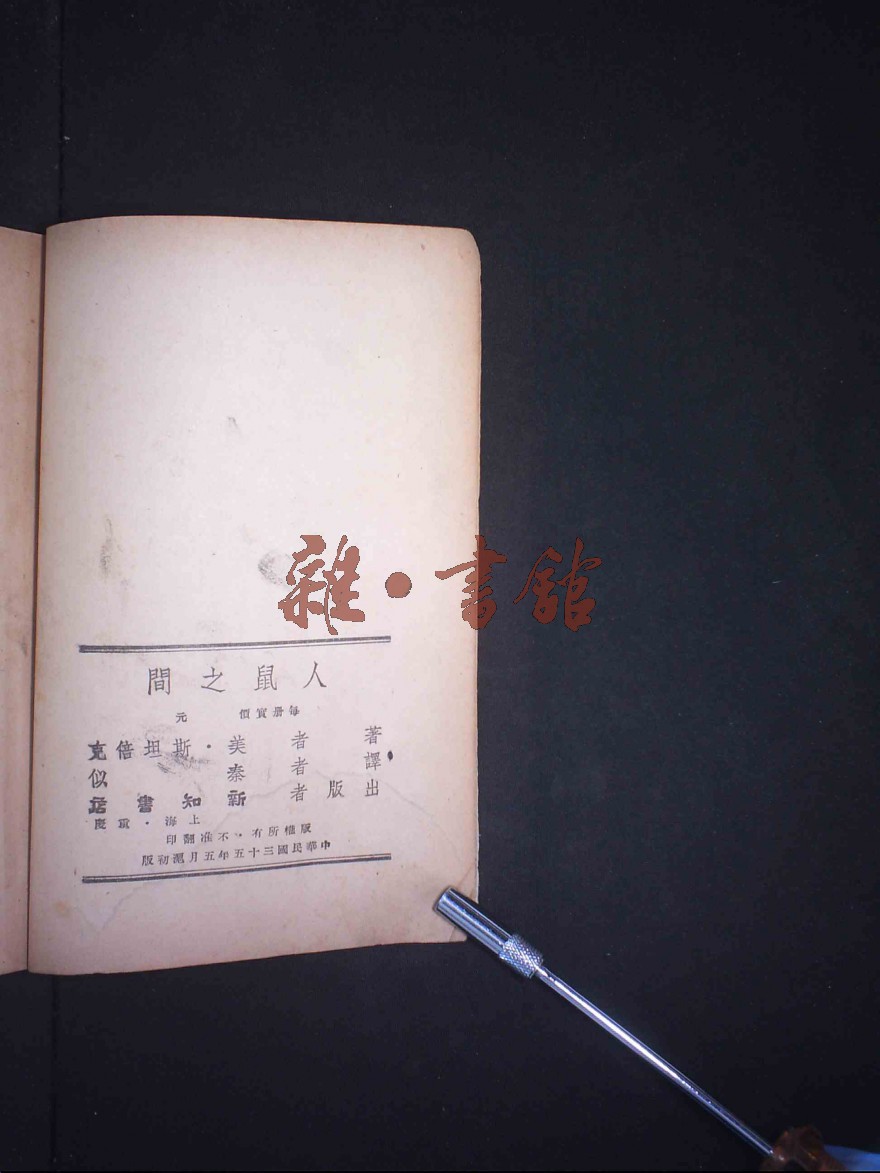 人鼠之間
每册實價　元
著者　美・斯坦倍克
譯者　秦似
出版者　新知書店
上海・重慶
版權所有・不准翻印
中華民國三十五年五月滬初版
雜・書館